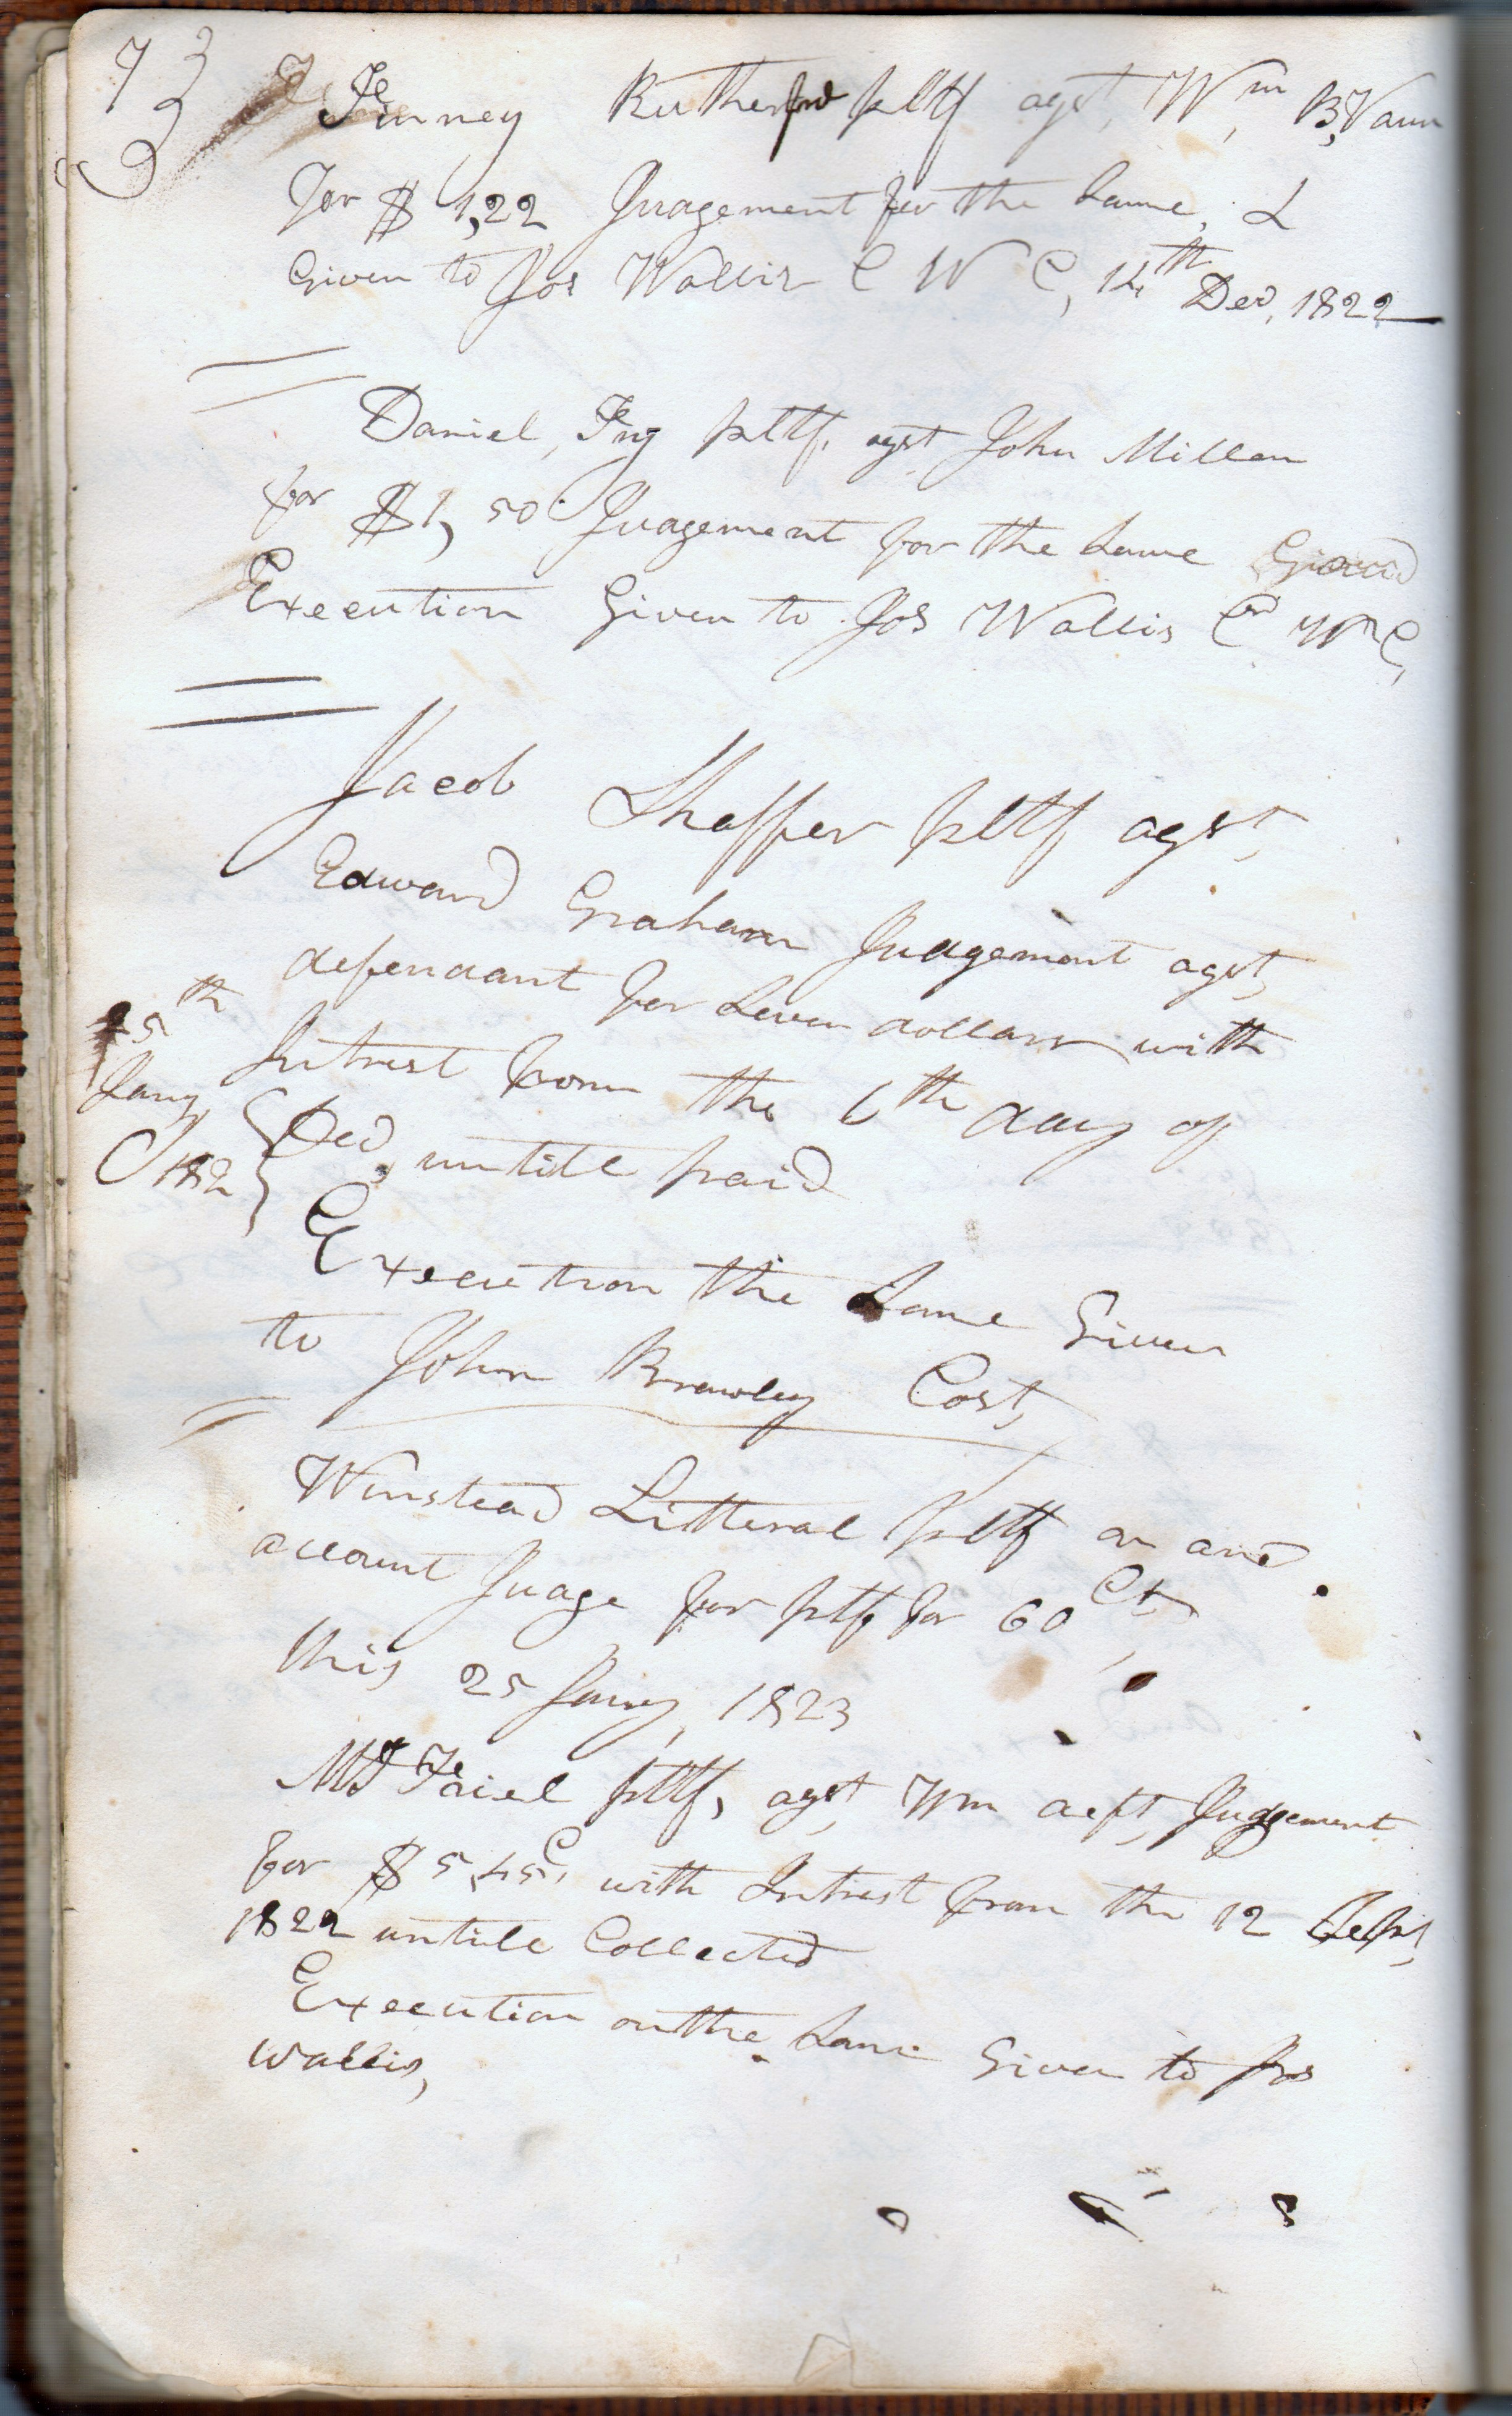 73
Finney Rutherford pltf agst, Wm, B, Vann
for $ 1,22 Judgement for the Same, &
Given to Jos Wallis C W C, 14th Decr, 1822
Daniel, Fry pltf. agst John Millen
for $1, 50 Judgement for the Same
Execution Given to Jos Wallis C W C,
Jacob Shaffer pltf agst,
Edward Graham Judgement agst,
defendant for Seven dollars with
Intrest from the 6th day of
Decr, untill paid
25th
Jany,
182
Execution the Same Given
to John Brawley Const,
Winstead Litteral pltf on and
account Judge for pltf for 60 Cts,
this 25 Jany, 1823
pltf, agst, Wm deft, Judgement
for $ 5,45c, with Intrest from the 12 Sept,
1822 untill Collected
Execution on the Same Given to Jos
Wallis,